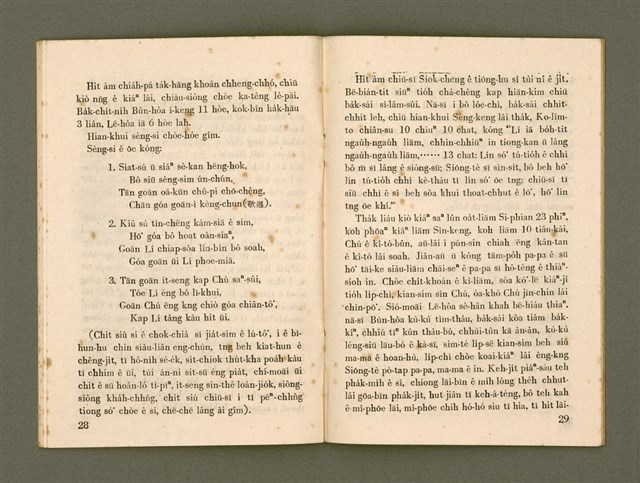 Hit àm chiáh-pá ták-hāng khoán chheng-chhó, chiū
kiò nn̄g ê kiáⁿ lâi, chiàu-siông chòe ka-têng lé-pài.
Bák-chit-nih Bûn-hôa i-keng 11 hòe, kok-bîn hák-hāu
3 liân, Lē-hôa iā 6 hòe lah.
Hian-khui sèng-si chòe-hóe gîm.
Sèng-si ê ōe kóng:
1. Siat-sú ū siáⁿ sè-kan hēng-hok,
Bô siū sèng-sim ún-chún,
Tān goān oá-kūn chû-pi chō-chêng,
Chān góa goān-i kéng-chun(歌選).
2. Kiû sù tìn-chēng kám-siā ê sim,
Hō͘ góa bô hoat oàn-siaⁿ,
Goān Lí chiap-sòa lín-bín bô soah,
Góa goān ūi Lí phoe-miā.
3. Tān goān it-seng kap Chú saⁿ-sûi,
Tòe Lí éng bô lī-khui,
Goān Chú ēng kng chiò góa chiân-tô͘,
Kap Lí tâng kàu hit ūi.
(Chit siú si ê chok-chiá sī jiát-sim ê lú-tô͘, i ê bī-
hun-hu chin siàu-liân eng-chùn, tng beh kiat-hun ê
chêng-jit, tī hô-nih sé-ék, sit-chiok thùt-kha poáh kàu
tī chhim ê ūi, túi án-ni sit-sū éng piát, chí-moāi ūi
chit ê sū hoân-ló ti-piⁿ, it-seng sin-thé loán-jiók, siông-
siông kháh-chhn̂g, chit siú chiū-sī i tī pēⁿ-chhn̂g
tiong só͘ chòe ê si, chē-chē lâng ài gîm).
28
Hit àm chiū-sī Siok-cheng ê tiōng-hu sí túi nî ê jit.
Bē-biān-tit siūⁿ tióh chá-chêng kap hiān-kim chiū
bák-sái sì-lâm-sûi. Nā-sī i bô lóe-chì, bák-sái chhit-
chhit leh, chiū hian-khui Sèng-keng lâi thák, Ko-lîm-
to chiân-su 10 chiuⁿ 10 chat, kóng “Lí iā bóh-tit
ngaúh-ngaúh liām, chhin-chhiūⁿ in tiong-kan ū lâng
ngaúh-ngaúh liām,…… 13 chat: Lín só͘ tú-tióh ê chhì
bô m̄ sī lâng ê siông-sū; Siōng-tè sī sìn-sit, bô beh hō͘
lín tú-tióh chhì kè-thâu tī lín só͘ ōe tng; chiū-sī tī
siū chhì ê sî beh sòa khui thoat-chhut ê lō͘, hō͘ lín
tng ōe khí.”
Thák liáu kiò kiáⁿ saⁿ lûn oát-liām Si-phian 23 phiⁿ,
koh phōaⁿ kiáⁿ liām Sin-keng, koh liām 10 tiâu-kài,
Chú ê kî-tó-bûn, aū-lâi i pún-sin chiah ēng kán-tan
ê kî-tó lâi soah. Jiân-aū ū kóng tām-póh pa-pa ê sū
hō͘ tāi-ke siāu-liām chāi-seⁿ ê pa-pa sī hô-téng ê thiàⁿ-
sioh in. Chòe chit-khoán ê kì-liām, sòa kó͘-lē kiáⁿ-jî
tióh líp-chì, kian-sim sìn Chú, óa-khò Chú jīn-chin lâi
chìn-pō͘. Sió-moāi Lē-hôa sè-hàn khah bē-hiáu thiaⁿ,
nā-sī Bûn-hôa kú-kú tìm-thâu, bák-sái kōa tiàm bák-
kîⁿ, chhiú tîⁿ kûn thâu-bú, chhùi-tûn kā ân-ân, kú-kú
léng-siū lāu-bó ê kà-sī, sim-té líp-sê kian-sim beh siū
ma-ma ê hoan-hù, líp-chì chòe koai-kiáⁿ lâi êng-kng
Siōng-tè pò-tap pa-pa, ma-ma ê in. Keh-jit piáⁿ-sàu teh
phák-mih ê sî, chiong lāi-bīn ê mih lóng théh chhut-
lâi góa-bīn phák-jit, hut-jiân tī keh-á-téng, bô teh kah
ê mî-phōe lāi, mî-phōe chih hó-hó siu tī hia, tī hit lāi-
29